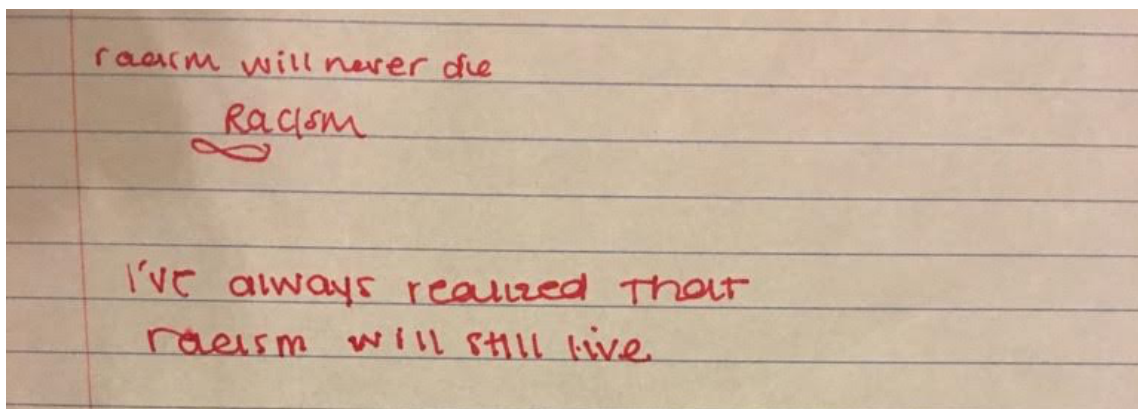 racism will never die
Racism
I've always realized that
racism will still live